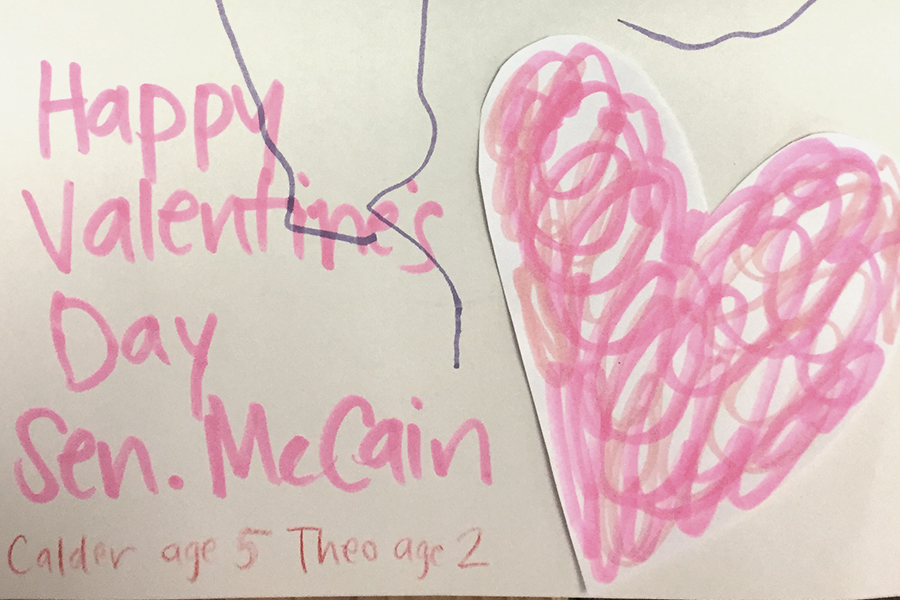 Happy
Valentine's
Day
Sen. McCain
Calder age 5 Theo age 2